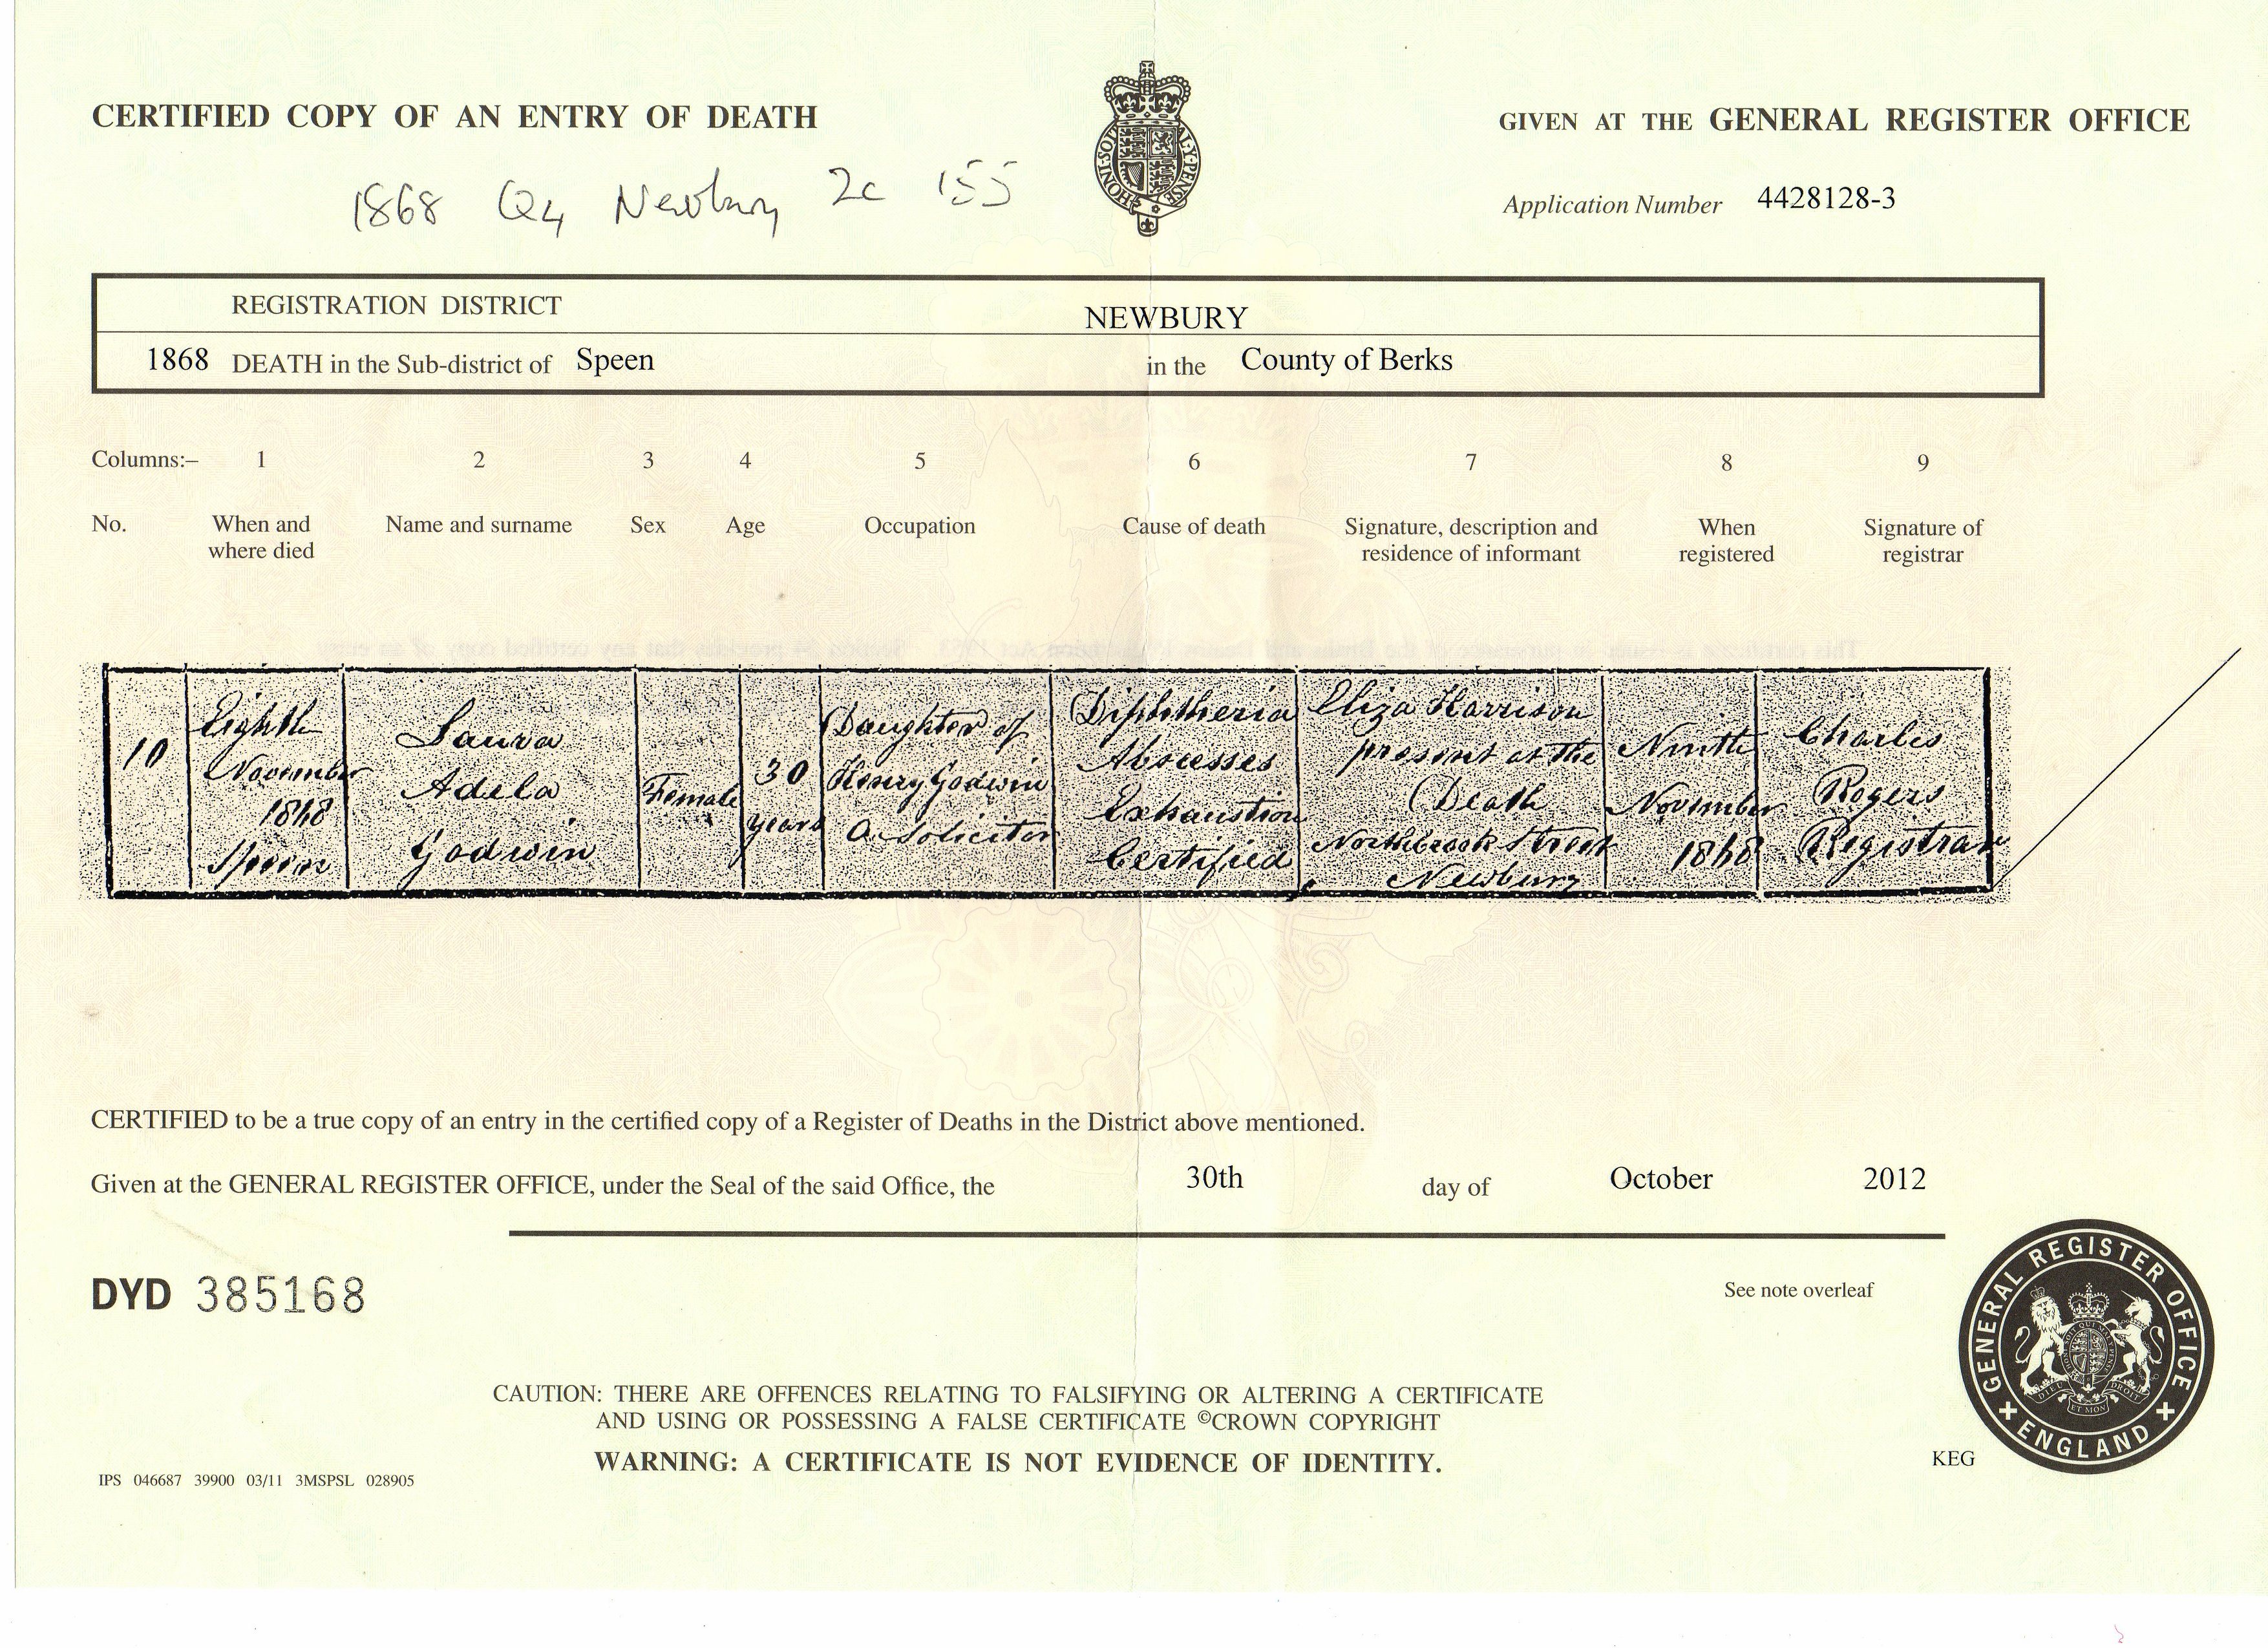 CERTIFIED COPY OF AN ENTRY OF DEATH
GIVEN AT THE GENERAL REGISTER OFFICE
1868 Q4 Newbury 2c 155
HONI SOIT QUI MAL Y PENSE
Application Number 4428128-3
REGISTRATION DISTRICT NEWBURY
1868 DEATH in the Sub-district of Speen in the County of Berks
Columns:– 1 2 3 4 5 6 7 8 9
No.
When and
where died
Name and surname
Sex
Age
Occupation
Cause of death
Signature, description and
residence of informant
When
registered
Signature of
registrar
10
Eighth
November
1868
Speen
Laura
Adela
Godwin
Female
30
years
Daughter of
Henry Godwin
a Solicitor
Diphtheria
Abscesses
Exhaustion
Certified
Eliza Harrison
present at the
Death
Northbrook Street
Newbury
Ninth
November
1868
Charles
Rogers
Registrar
CERTIFIED to be a true copy of an entry in the certified copy of a Register of Deaths in the District above mentioned.
Given at the GENERAL REGISTER OFFICE, under the Seal of the said Office, the 30th day of October 2012
DYD 385168
See note overleaf
GENERAL REGISTER OFFICE
ENGLAND
DIEU ET MON DROIT
CAUTION: THERE ARE OFFENCES RELATING TO FALSIFYING OR ALTERING A CERTIFICATE
AND USING OR POSSESSING A FALSE CERTIFICATE ©CROWN COPYRIGHT
WARNING: A CERTIFICATE IS NOT EVIDENCE OF IDENTITY.
KEG
IPS 046687 39900 03/11 3MSPSL 028905